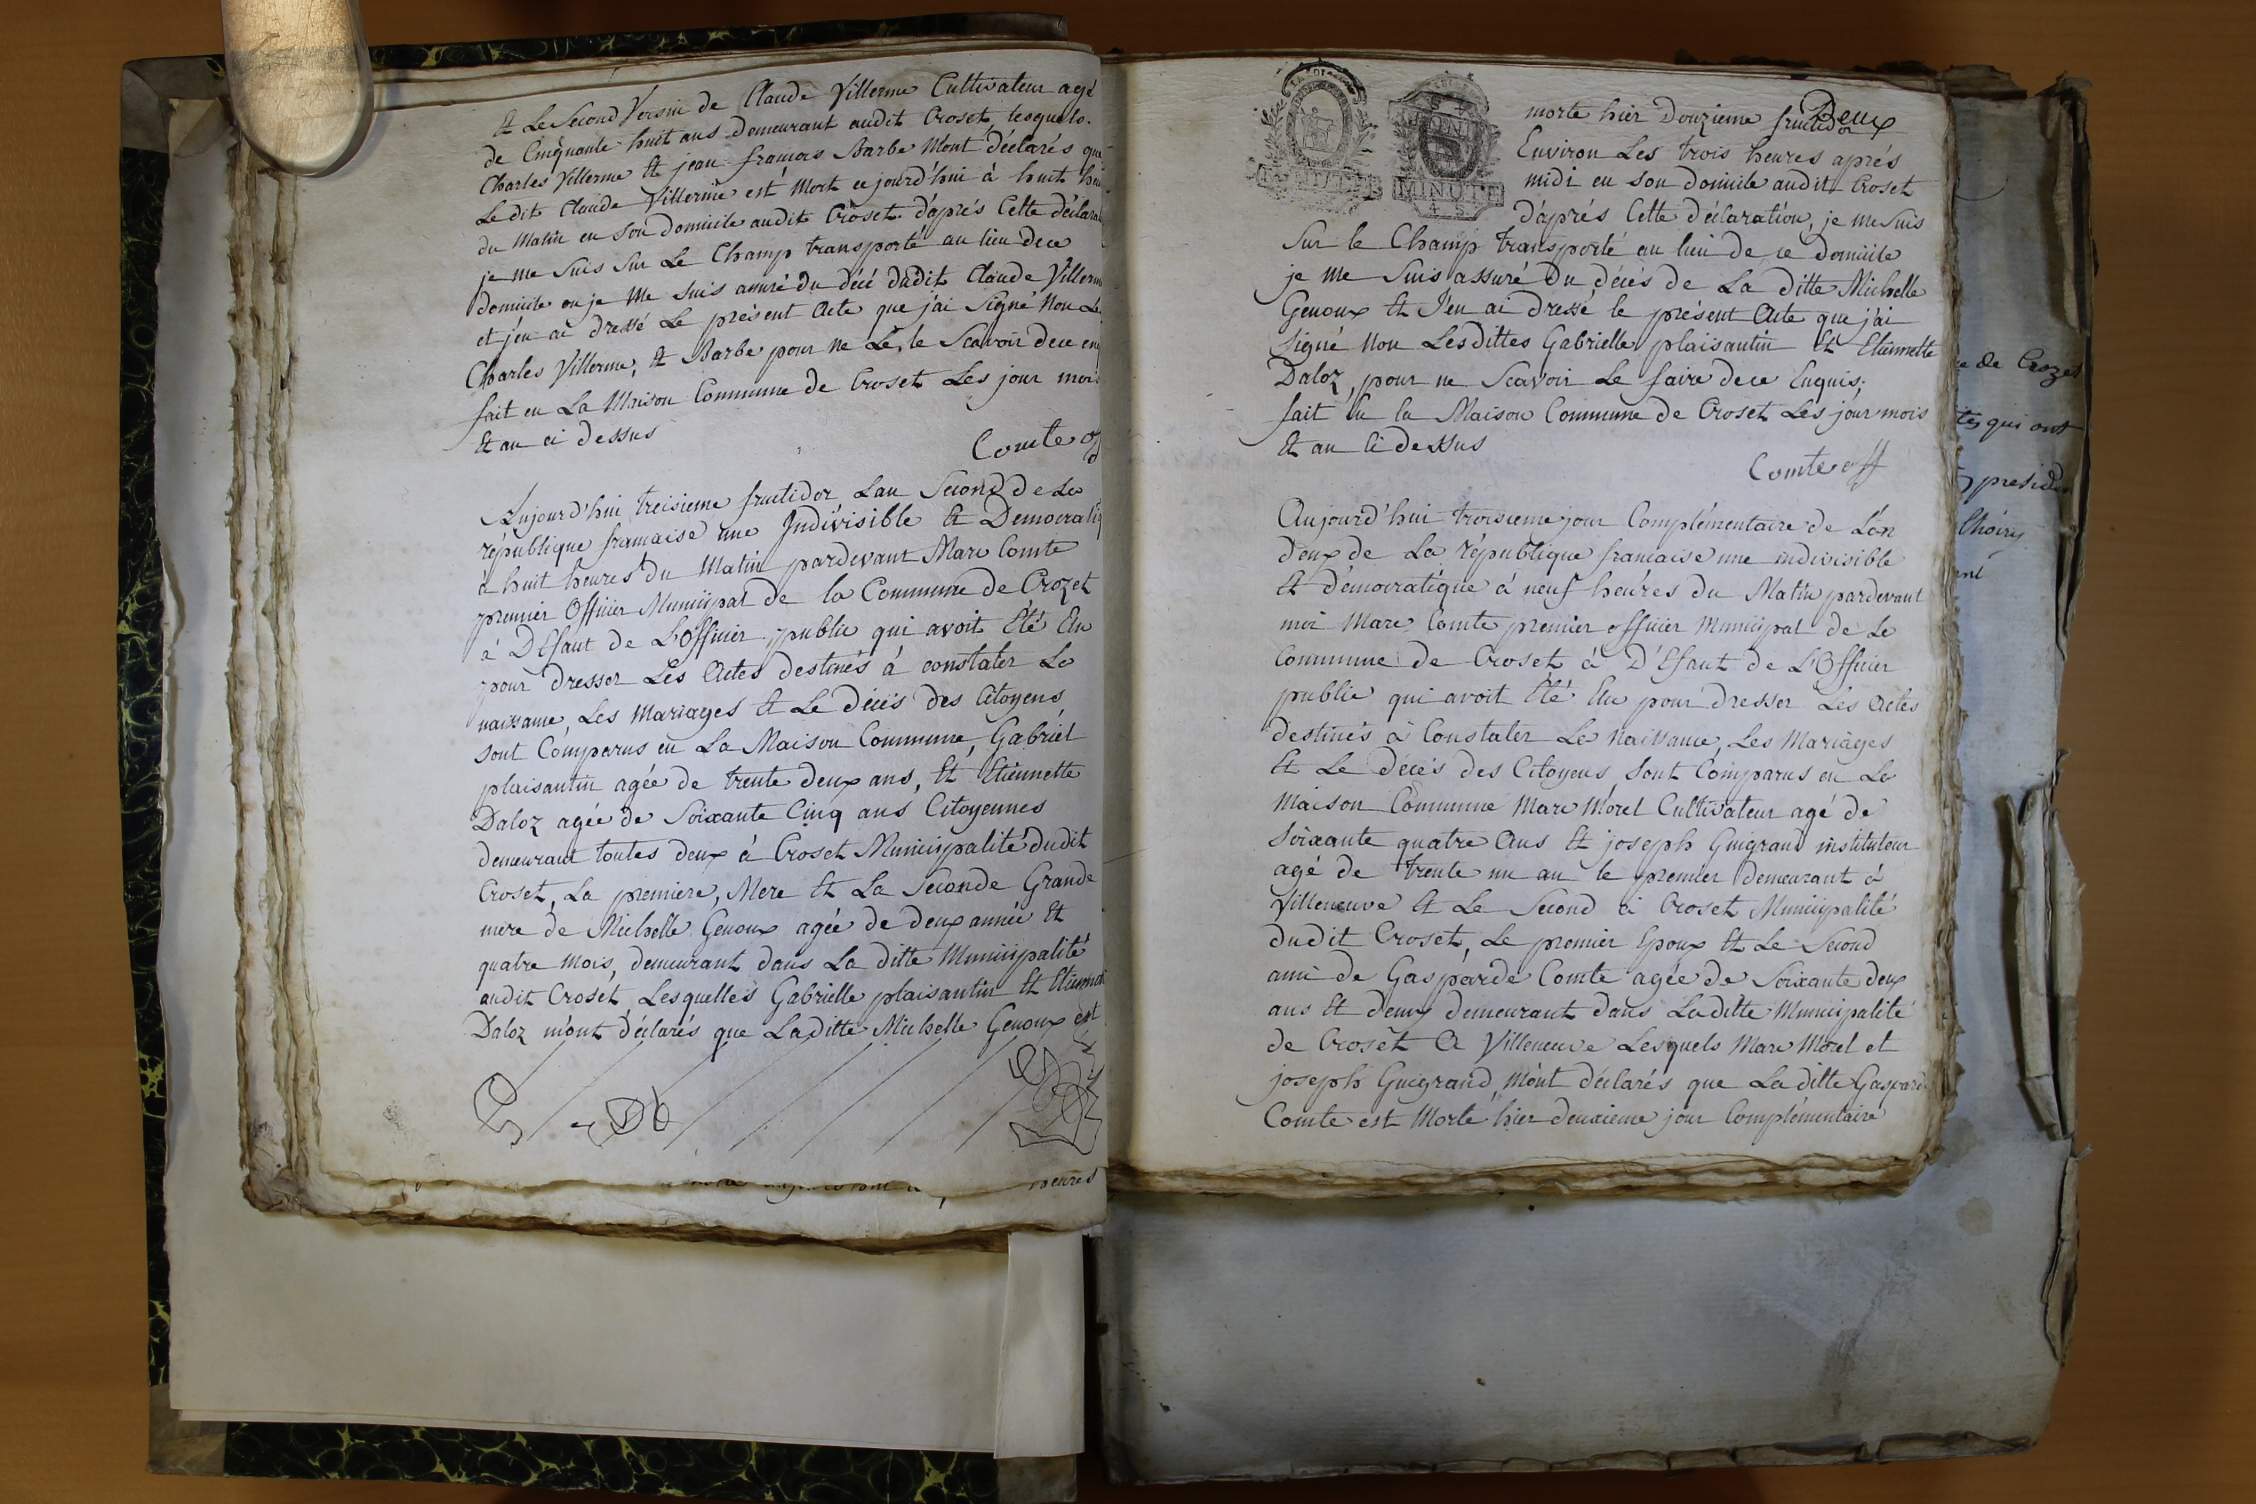 Et Le Second Voisin de Claude Villerme Cultivateur agé
de Cinquante huit ans Demeurant audit Croset, lesquels
Charles Villerme Et jean françois Barbe M'ont déclarés que
Le dit Claude Villerme est Mort ce jourd'hui à huit
du Matin en son Domicile audit Croset. d'aprés Cette
je me suis sur Le Champ transporté au lieu de ce
domicile ou je Me suis assuré du décé dudit Claude
et j'en ai dressé Le présent Acte que j'ai Signé Non Le
Charles Villerme, Et Barbe pour ne Le le Scavoir de ce
fait en La Maison Commune de Croset Les jour mois
Et an ci dessus
Comte
Aujourd'hui treisieme fructidor Lan Second de La
république francaise une Indivisible Et
à huit heures du Matin pardevant Marc Comte
premier Officier Municipal de la Commune de Crozet
à Défaut de L'Officier public qui avoit Eté Elu
pour dresser Les Actes destinés à constater La
naissance, Les Mariages Et Le Décés des Citoyens
sont Comparus en La Maison Commune, Gabriel
plaisantin agée de trente deux ans, Et Etiennette
Daloz agée de Soixante Cinq ans Citoyennes
demeurant toutes deux à Croset Municipalité dudit
Croset, La premiere, Mere Et La Seconde Grande
mere de Michelle Genoux agée de deux année Et
quatre Mois, demeurant dans La ditte Municipalité
audit Croset, Lesquelles Gabrielle plaisantin Et
Daloz m'ont déclarés que La ditte Michelle Genoux est
heures
Deux
morte hier Douzieme fructidor
Environ Les trois heures aprés
midi en son domicile audit Croset
d'aprés Cette déclaration, je me suis
Sur le Champ transporté au lieu de ce Domicile
je me Suis assuré du décés de La ditte Michelle
Genoux Et J'en ai dressé le présent Acte que j'ai
Signé Non Lesdittes Gabrielle plaisantin Et Etiennette
Daloz, pour ne Scavoir Le faire de ce Enquis;
fait en la Maison Commune de Croset Les jour mois
Et an Ci dessus
Comte off
Aujourd'hui troisieme jour Complémentaire de L'an
deux de La république francaise une indivisible
Et démocratique à neuf heures du Matin pardevant
moi Marc Comte premier officier Municipal de La
Commune de Croset à D'Efaut de L'Officier
public qui avoit Eté Elu pour dresser Les Actes
destinés à Constater La Naissance, Les Mariages
Et Le Décés des Citoyens, sont Comparus en La
Maison Commune Marc Morel Cultivateur agé de
Soixante quatre Ans Et joseph Guigrand instituteur
agé de trente un an le premier demeurant à
Villeneuve Et Le Second à Croset Municipalité
dudit Croset, Le premier Epoux Et Le Second
ami de Gasparde Comte agée de Soixante deux
ans Et demy demeurant dans La ditte Municipalité
de Croset A Villeneuve Lesquels Marc Morel et
joseph Guigrand M'ont déclarés que La ditte Gasparde
Comte est Morte hier deuxieme jour Complémentaire
MINUTE
de Crozet
qui ont